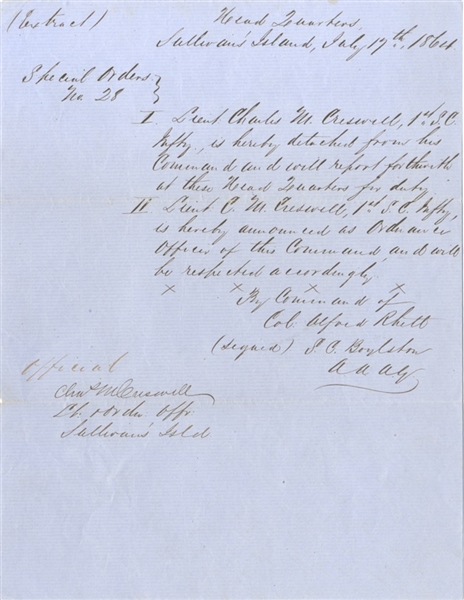 (Extract)
Head Quarters,
Sullivan's Island, July 17th, 1864.
Special Orders
No 28
I Lieut Charles M. Creswell, 1st S.C.
Infty, is hereby detached from his
Command and will report forthwith
at these Head Quarters for duty
II Lieut C. M. Creswell, 1st S. C. Infty,
is hereby announced as Ordnance
Officer of this Command, and will
be respected accordingly
x x x x
By Command of
Col. Alfred Rhett
(signed) S. C. Boylston
A A A G
Official
Chas M Creswell
Lt & Ordn Offr.
Sullivan's Isld